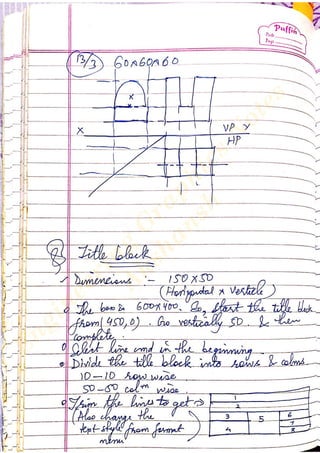 Puffin
Date
Page
13/3 60x60x60
x
x
X VP Y
HP
Title block
Dimensions :- 150 x 50
(Horizontal x Verticle)
The box is 600x400. So, start the title block
from (450,0). Go vertically 50. & then
complete
Select line cmd in the beginning.
Divide the title block into rows & colms.
10-10 row wise.
50-50 colm wise.
Trim the lines to get →
(Also change the
text style from format
menu)
1
2
3 5 6
7
4 8